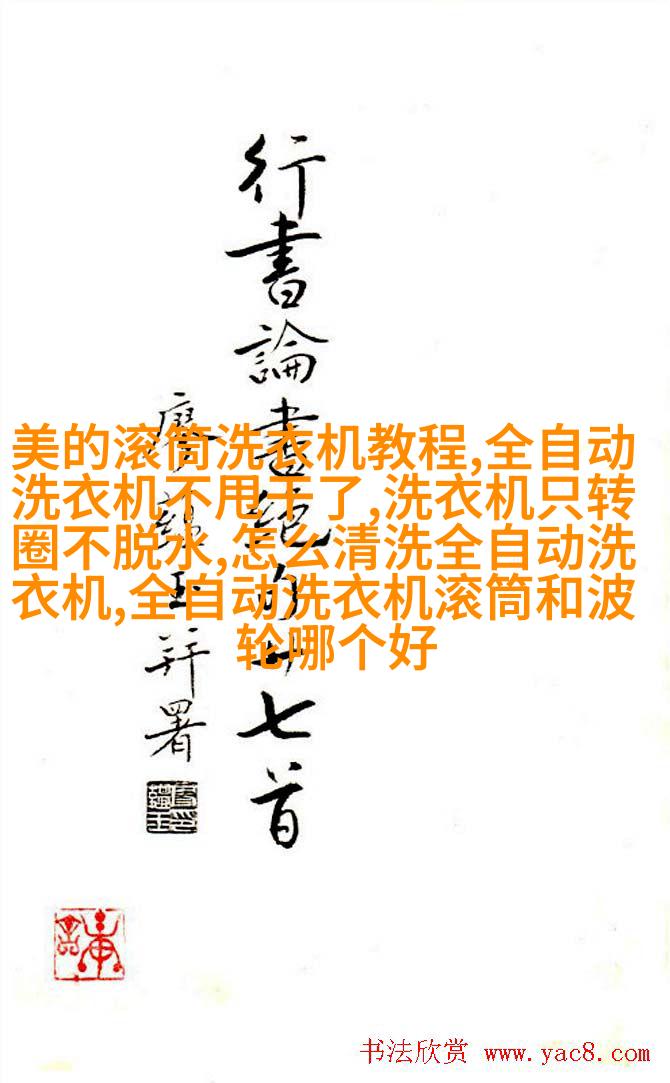 行書論書絕句廿七首
廖蘊玉并署
美的滚筒洗衣机教程,全自动
洗衣机不甩干了,洗衣机只转
圈不脱水,怎么清洗全自动洗
衣机,全自动洗衣机滚筒和波
轮哪个好
书法欣赏 www.yac8.com